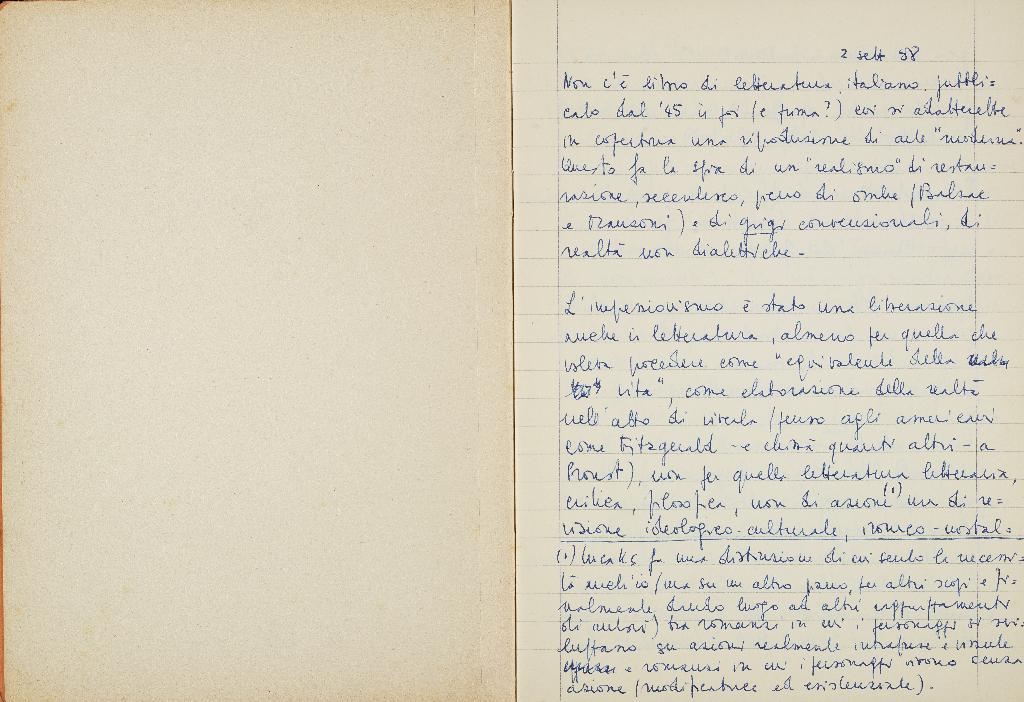 2 sett 58
Non c'è libro di letteratura italiana pubbli=
cato dal '45 in poi (e prima?) cui si adatterebbe
in copertina una riproduzione di arte "moderna".
Questo fa la spia di un "realismo" di restau-
razione, ottocentesco, pieno di ombre (Balzac
e Manzoni) e di grigi convenzionali, di
realtà non dialettiche -
L'impressionismo è stato una liberazione
anche in letteratura, almeno per quella che
voleva procedere come "equivalente della
vita", come elaborazione della realtà
nell'atto di viverla (penso agli americani
come Fitzgerald - e chissà quanti altri - a
Proust), non per quella letteratura letteraria,
critica, filosofica, non di azione (1) ma di re=
visione ideologico-culturale, ironico-nostal=
(1) Lucaks fa una distinzione di cui sento la necessi-
tà anch'io (ma su un altro piano, per altri scopi e fi-
nalmente dando luogo ad altri raggruppamenti
di autori) tra romanzi in cui i personaggi si svi-
luppano su azioni realmente intraprese e vissute
e romanzi in cui i personaggi vivono senza
azione (modificatrice ed esistenziale).